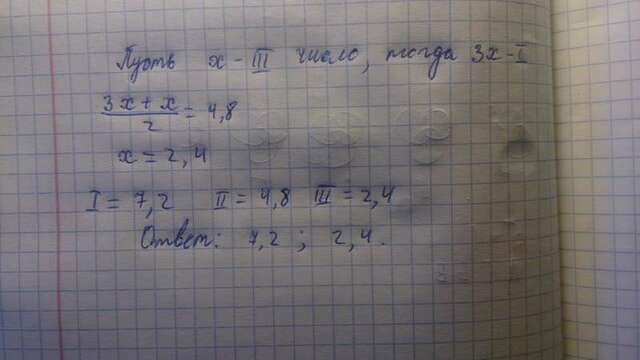 Пусть x - III число, тогда 3x - I
(3x + x)/2 = 4,8
x = 2,4
I = 7,2 II = 4,8 III = 2,4
Ответ: 7,2 ; 2,4.